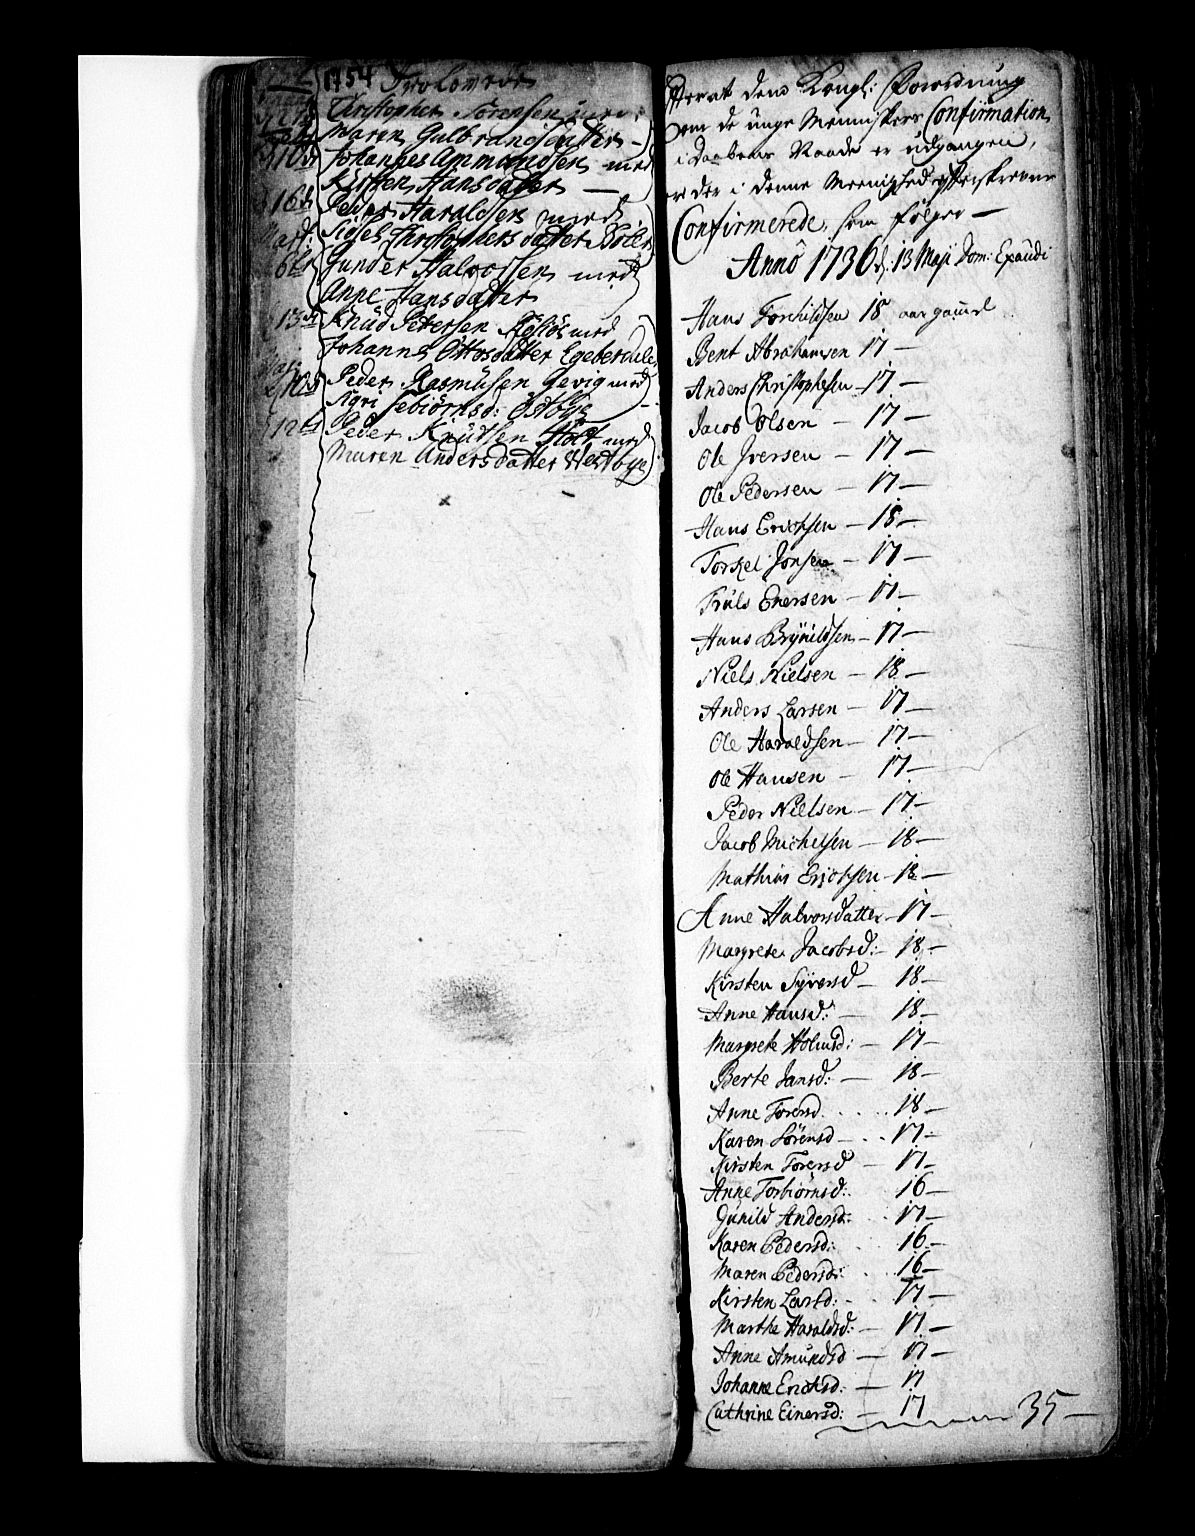 1754 Trolovede
Christopher Sørensen med
Maren Gulbransdatter –
Johannes Ammundsen med
Kirsten Hansdatter —
16de Peder Haraldsen med
Mart: Sidsel Christophersdatter
6te Gunder Halvorsen med
Anne Hansdatter
13de Knud Petersen med
Johanne Ottosdatter Egeberdalen
Peder Rasmusen Gevig med
Sigri Tebiørnsd: Østbye
12te Peder Knutsen Holt med
Maren Andersdatter Westbye
Efterat den Kongl: Forordning
om de unge Menniskers Confirmation
i Daabens Naade er udgangen,
er der i denne Meenighed efterskrevne
Confirmerede, som følger —
Annô 1736 d: 13 Maji Dom: Exaudi
Hans Torchildsen 18 aar gaml
Bent Abrahamsen 17 —
Anders Christophersen – 17 –
Jacob Olsen – 17 –
Ole Iversen – 17 –
Ole Pedersen – 17 –
Hans Erichsen – 18 –
Torkel Jonsen – 17 –
Truls Enersen – 17 –
Hans Brynildsen – 17 –
Niels Nielsen – 18 –
Anders Larsen – 17 –
Ole Haraldsen – 17 –
Ole Hansen – 17 –
Peder Nielsen – 17 –
Jacob Michelsen – 18 –
Mathias Erichsen – 18 –
Anne Halvorsdatter – 17 –
Margrete Jacobsd: – 18 –
Kirsten Syversd – 18 –
Anne Hansd: — 18 –
Margrete Holmsd: – 17 –
Berte Jansd: — 18 –
Anne Torersd. . . . . 18 –
Karen Sörensd – . . 17 –
Kirsten Torersd – 17 –
Anne Torbiörnsd: 16 –
Gunild Andersd: . . 17 –
Karen Pedersd: . . 16 –
Maren Pedersd: . . 16 –
Kirsten Larsd: – . 17 –
Marthe Haraldsd: – 17 –
Anne Amundsd — 17 –
Johanne Erichsd: — 17
Cathrine Einersd: — 17
35 –